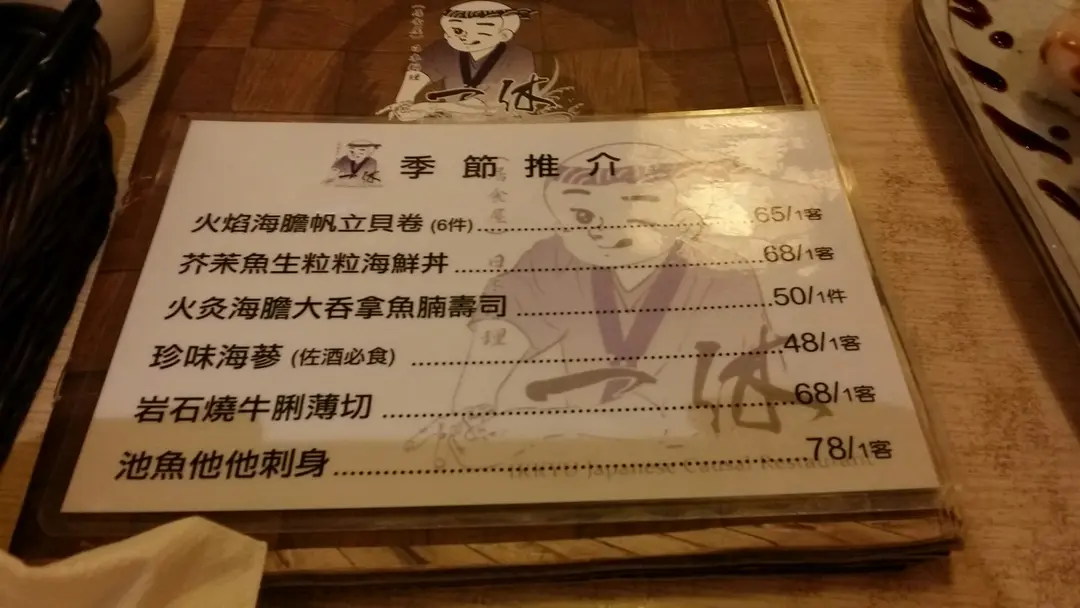 一休
季節推介
火焰海膽帆立貝卷 (6件) 65/1客
芥茉魚生粒粒海鮮丼 68/1客
火灸海膽大吞拿魚腩壽司 50/1件
珍味海蔘 (佐酒必食) 48/1客
岩石燒牛脷薄切 68/1客
池魚他他刺身 78/1客
一休
Japanese Causal Restaurant